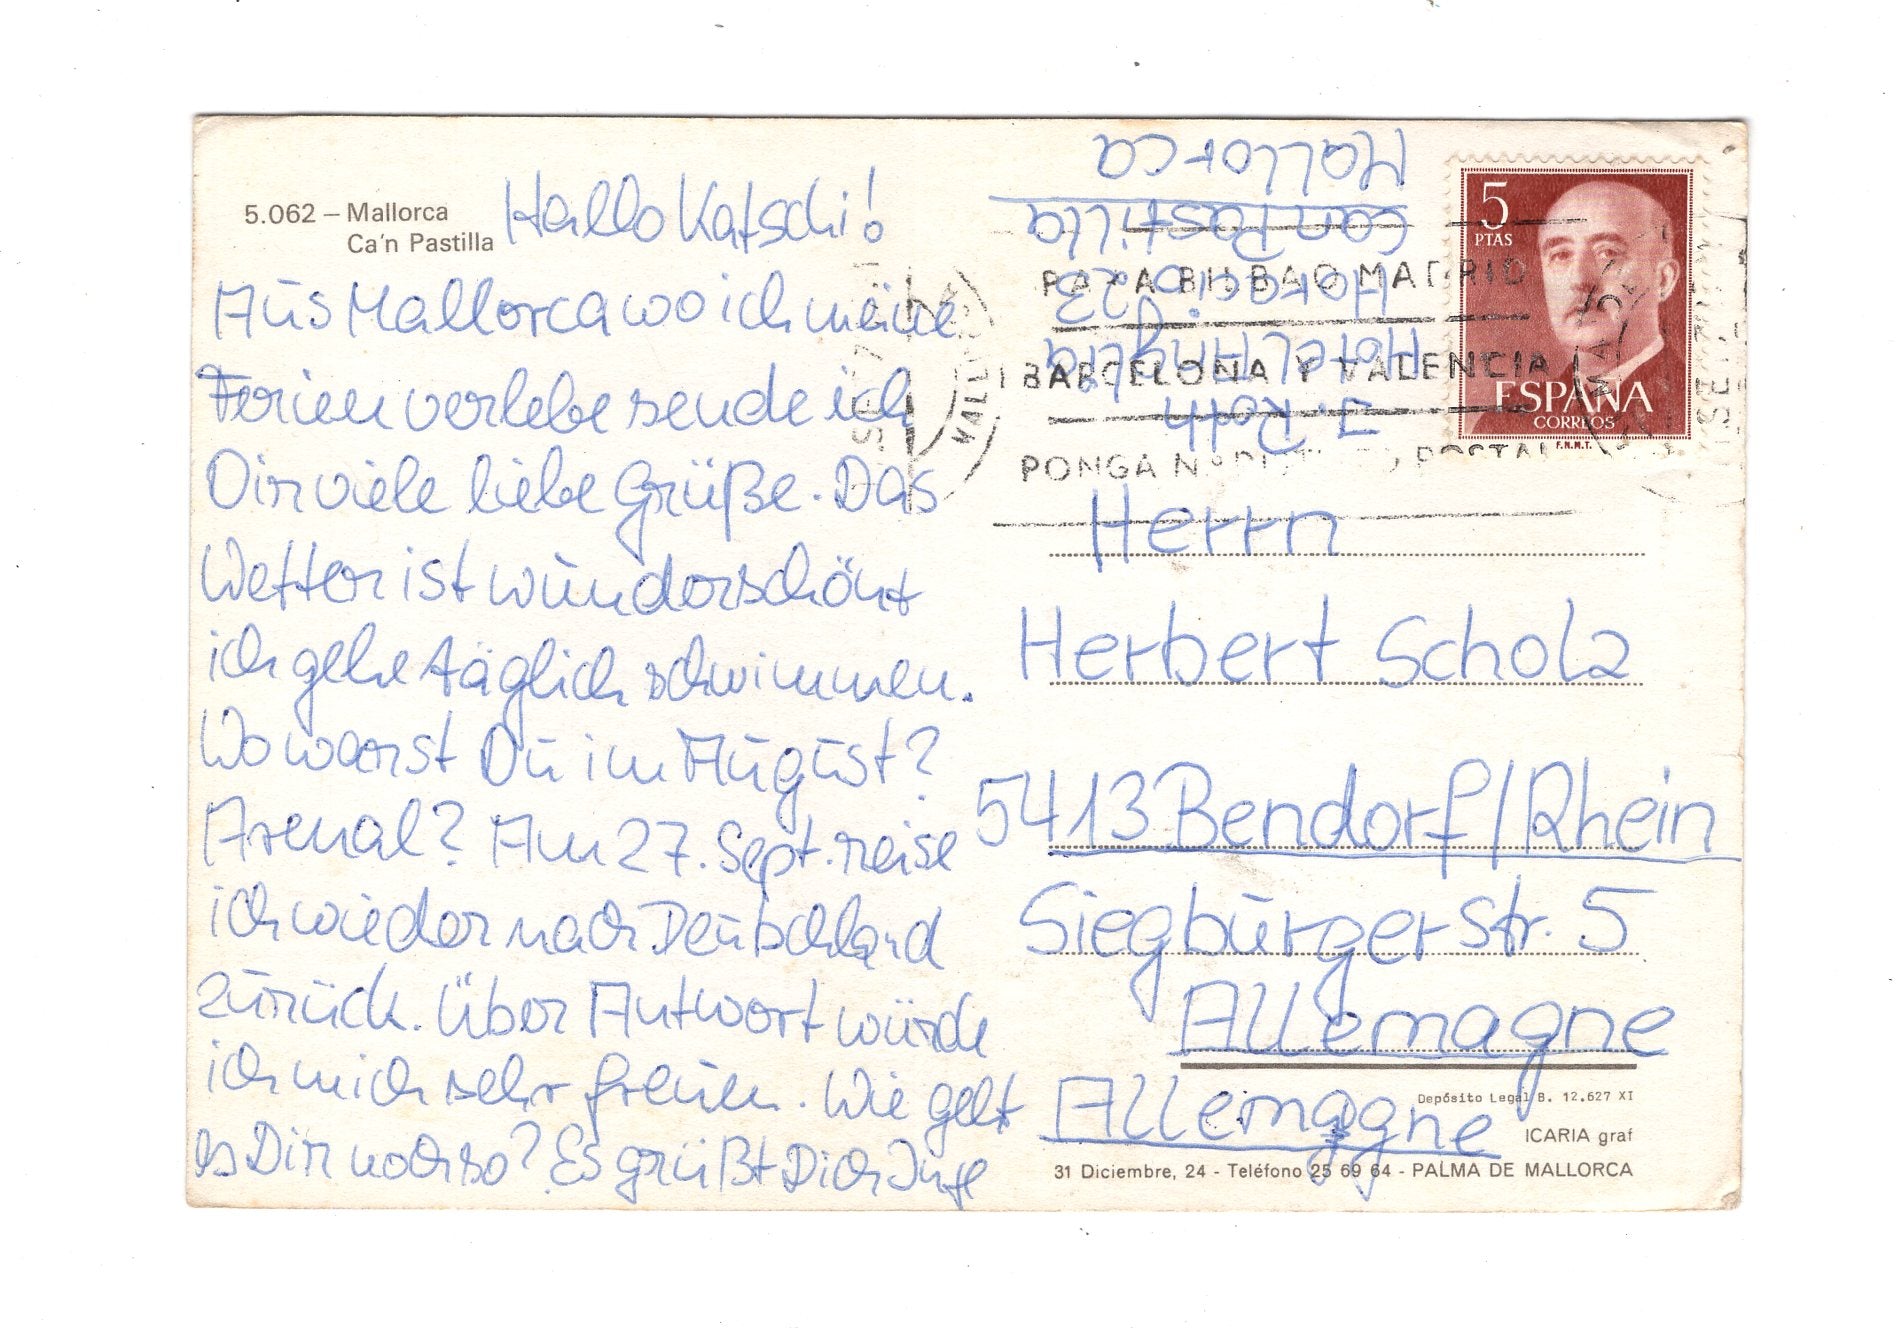 5.062 – Mallorca
Ca'n Pastilla
Hallo Katschi!
Aus Mallorca wo ich meine
Ferien verlebe sende ich
Dir viele liebe Grüße. Das
Wetter ist wunderschönt
ich gehe täglich schwimmen.
Wo warst Du im August?
Arenal? Am 27. Sept. reise
ich wieder nach Deutschland
zurück. Über Antwort würde
ich mich sehr freuen. Wie geht
es Dir noch so? Es grüßt Dich Inge
J. Roth
Hotel Anglia
Horacio 23
Can Pastilla
Mallorca
PARA BILBAO MADRID
BARCELONA Y VALENCIA
PONGA POSTAL
MALLORCA
5
PTAS
ESPAÑA
CORREOS
F.N.M.T.
Herrn
Herbert Scholz
5413 Bendorf/Rhein
Siegburger Str. 5
Allemagne
Allemagne
Depósito Legal B. 12.627 XI
ICARIA graf
31 Diciembre, 24 - Teléfono 25 69 64 - PALMA DE MALLORCA